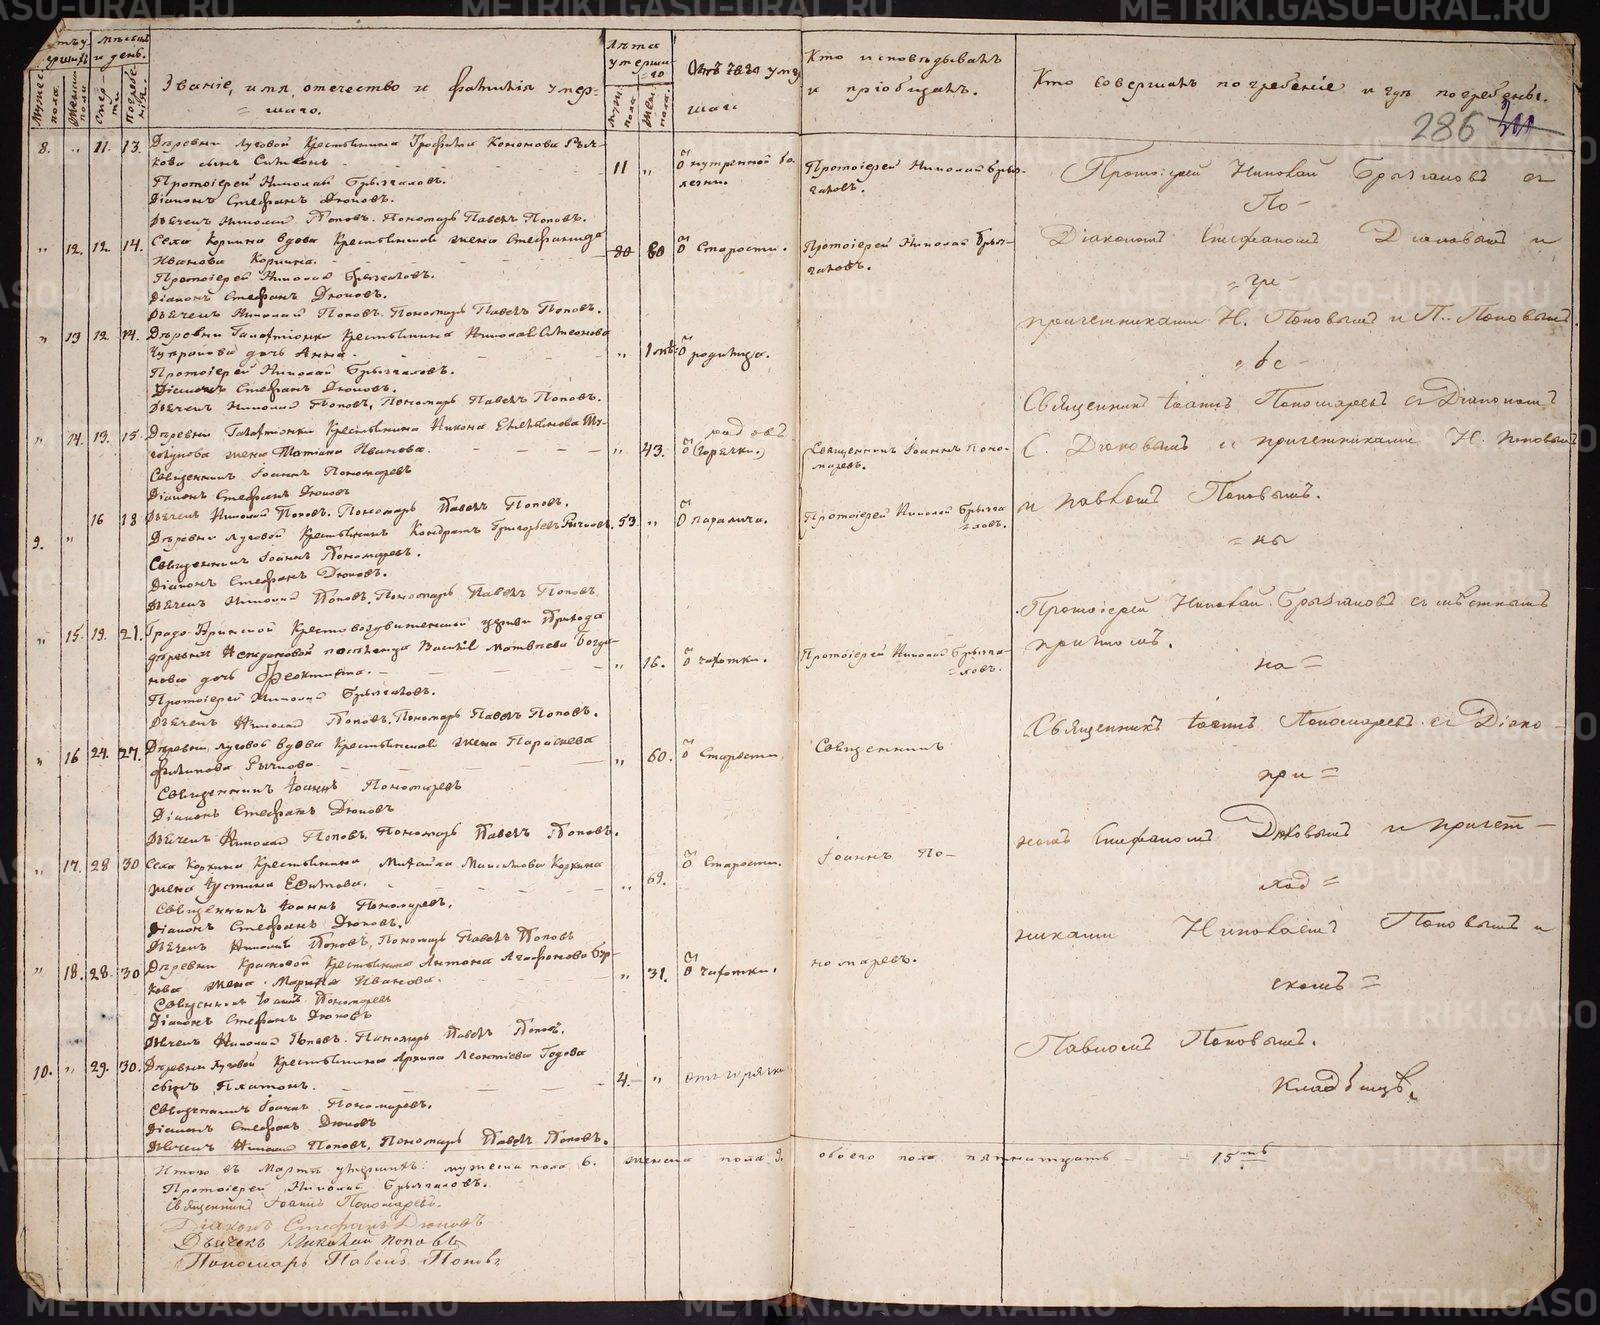 Мѣсяцъ и день.
Лѣта умерша-
го
Званіе, имя, отечество и фамилія умер-
шаго.
Отъ чего умер
шаго
Кто исповѣдывалъ
и пріобщалъ.
Кто совершалъ погребеніе и гдѣ погребены.
Мужес. пола
Женска пола
Смер-
ти.
Погребе-
нія.
Муж. пола
Жен. пола.
286
8. „ 11. 13. Деревни Луговой Крестьянина Трофима Кононова Рыч-
кова сынъ Симеонъ
11 „
внутренной бо-
лезни.
Протоіерей Николай Брызгаловъ.
Діаконъ Стефанъ Дюковъ.
Дьячекъ Николай Поповъ. Пономарь Павелъ Поповъ.
Протоіерей Николай Брыз-
галовъ.
Протоіерей Николай Брызгаловъ съ
По-
„ 12. 12. 14. Села Коркина вдова Крестьянская жена Стефанида
Иванова Коркина.
80 Старости.
Протоіерей Николай Брызгаловъ.
Діаконъ Стефанъ Дюковъ.
Дьячекъ Николай Поповъ. Пономарь Павелъ Поповъ.
Протоіерей Николай Брыз-
галовъ.
Діакономъ Стефаномъ Дюковымъ и
гре-
причетниками Н. Поповымъ и П. Поповымъ.
„ 13 12 14. Деревни Крестьянина Николая Симеонова
дочь Анна.
„ родимца.
Протоіерей Николай Брызгаловъ.
Діаконъ Стефанъ Дюковъ.
Дьячекъ Николай Поповъ, Пономарь Павелъ Поповъ.
бе-
Священникъ Іоаннъ Пономаревъ съ Діакономъ
С. Дюковымъ и причетниками Н. Поповымъ
и Павломъ Поповымъ.
„ 14. 13. 15. Деревни Крестьянина Никона
жена Татіана Иванова.
„ 43. родовъ
(Горячки.)
Священникъ Іоаннъ Пономаревъ
Діаконъ Стефанъ Дюковъ
Дьячекъ Николай Поповъ. Пономарь Павелъ Поповъ.
Священникъ Іоаннъ Поно-
маревъ.
9. „ 16 18 Деревни Луговой Крестьянинъ Кондратъ Григорьевъ Рычковъ.
53 „ паралича.
Священникъ Іоаннъ Пономаревъ.
Діаконъ Стефанъ Дюковъ.
Дьячекъ Николай Поповъ. Пономарь Павелъ Поповъ.
Протоіерей Николай Брызга-
ловъ.
ны
„ 15. 19. 21. Градо-Ирбитской Крестовоздвиженской церкви Прихода
деревни поселенца Василія Матвѣева Богда-
нова дочь Феоктиста.
„ 16. чахотки.
Протоіерей Николай Брызгаловъ.
Дьячекъ Николай Поповъ, Пономарь Павелъ Поповъ.
Протоіерей Николай Брызга-
ловъ.
Протоіерей Николай Брызгаловъ съ
причтомъ.
на
„ 16 24. 27. Деревни Луговой вдова Крестьянская жена Параскева
Филипова Рычкова.
„ 60. Старости
Священникъ Іоаннъ Пономаревъ
Діаконъ Стефанъ Дюковъ
Дьячекъ Николай Поповъ, Пономарь Павелъ Поповъ.
Священникъ
Священникъ Іоаннъ Пономаревъ съ Діако-
при
номъ Стефаномъ Дюковымъ и причет-
„ 17. 28 30 Села Коркина Крестьянина Михаила Максимова Коркина
жена Устинья Ефимова.
„ 69. Старости.
Священникъ Іоаннъ Пономаревъ.
Діаконъ Стефанъ Дюковъ.
Дьячекъ Николай Поповъ, Пономарь Павелъ Поповъ
Іоаннъ По-
ход
никами Николаемъ Поповымъ и
„ 18. 28. 30 Деревни Красновой Крестьянина Антона Агафонова
жена Марина Иванова.
„ 31. чахотки.
Священникъ Іоаннъ Пономаревъ
Діаконъ Стефанъ Дюковъ
Дьячекъ Николай Поповъ. Пономарь Павелъ Поповъ.
номаревъ.
скомъ
Павломъ Поповымъ.
10. „ 29. 30. Деревни Луговой Крестьянина Архипа Леонтіева
сынъ Платонъ.
4. „ отъ горячки
Священникъ Іоаннъ Пономаревъ.
Діаконъ Стефанъ Дюковъ
Дьячекъ Николай Поповъ, Пономарь Павелъ Поповъ.
Кладбищѣ.
Итого въ Мартѣ умершихъ: мужеска пола 6. женска пола 9. обоего пола пятнатцать 15ть
Протоіерей Николай Брызгаловъ.
Священникъ Іоаннъ Пономаревъ.
Діаконъ Стефанъ Дюковъ
Дьячекъ Николай Поповъ
Пономарь Павелъ Поповъ
METRIKI.GASO-URAL.RU